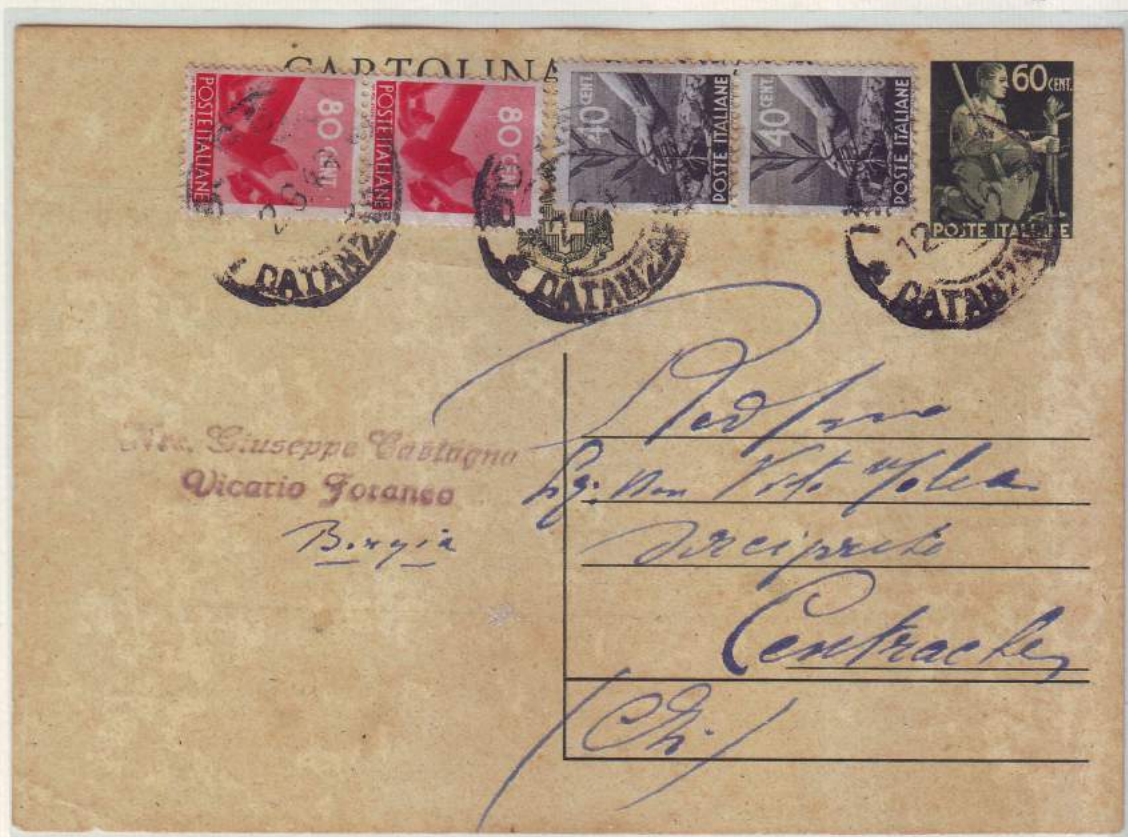 CARTOLINA
POSTE ITALIANE 80 CENT.
POSTE ITALIANE 80 CENT.
40 CENT. POSTE ITALIANE
40 CENT. POSTE ITALIANE
60 CENT.
POSTE ITALIANE
12
Giuseppe Castagna
Vicario Foraneo
Borgia
Sig. Don Vito
Arciprete
Centrache